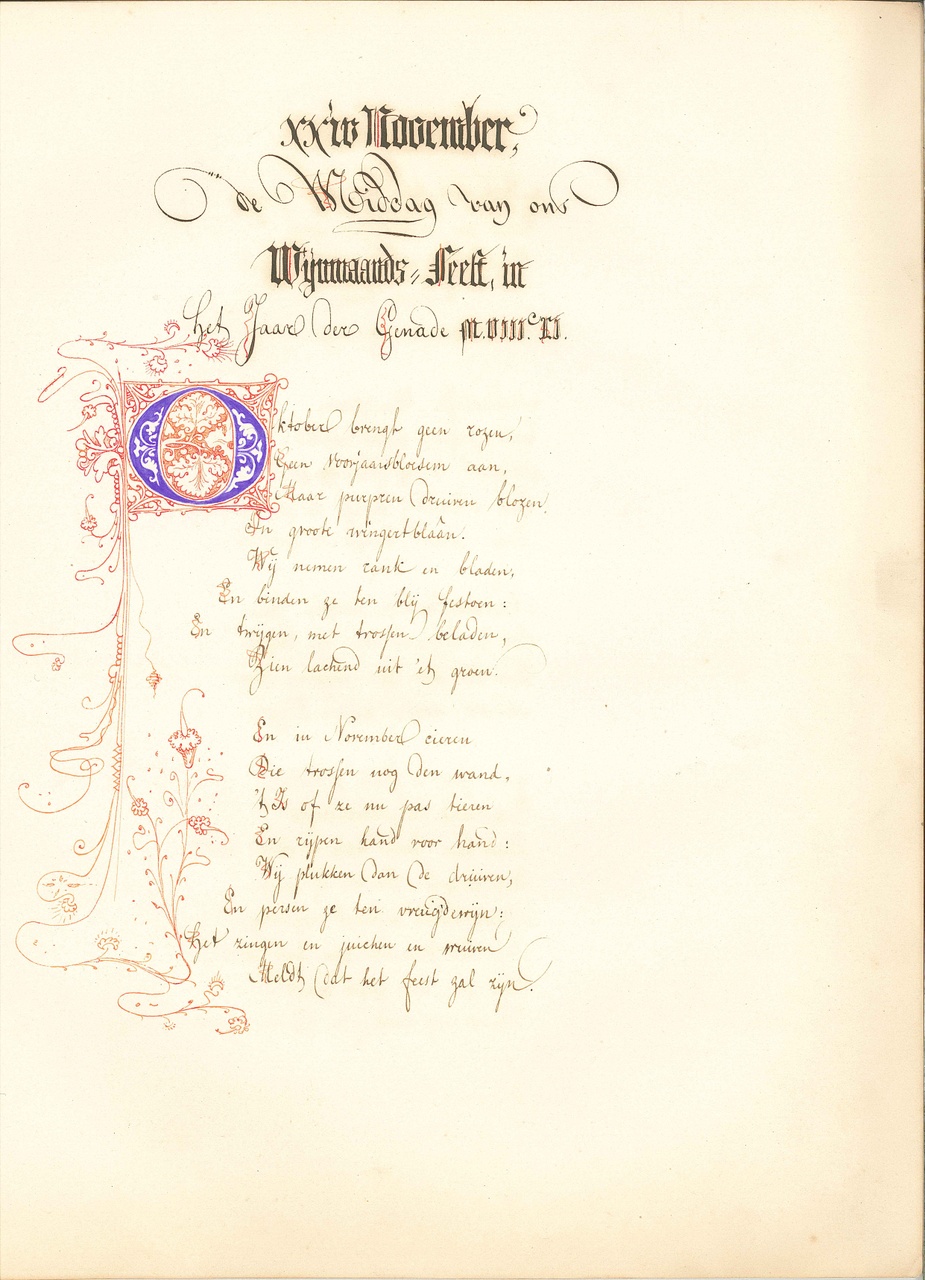 xxiv November,
de Middag van ons
Wijnmaands=Feest, in
het Jaar der Genade M.VIIIc.XL.
Oktober brengt geen rozen,
Geen voorjaarsbloesem aan,
Maar purpren druiven blozen
In groote wingertblaân.
Wij nemen rank en bladen,
En binden ze ten blij festoen:
En twijgen, met trossen beladen,
Zien lachend uit 'et groen.
En in November cieren
Die trossen nog den wand,
't Is of ze nu pas tieren
En rijpen hand voor hand:
Wij plukken dan de druiven,
En persen ze ten vreugdewijn:
Het zingen en juichen en wuiven
Meldt dat het feest zal zijn.